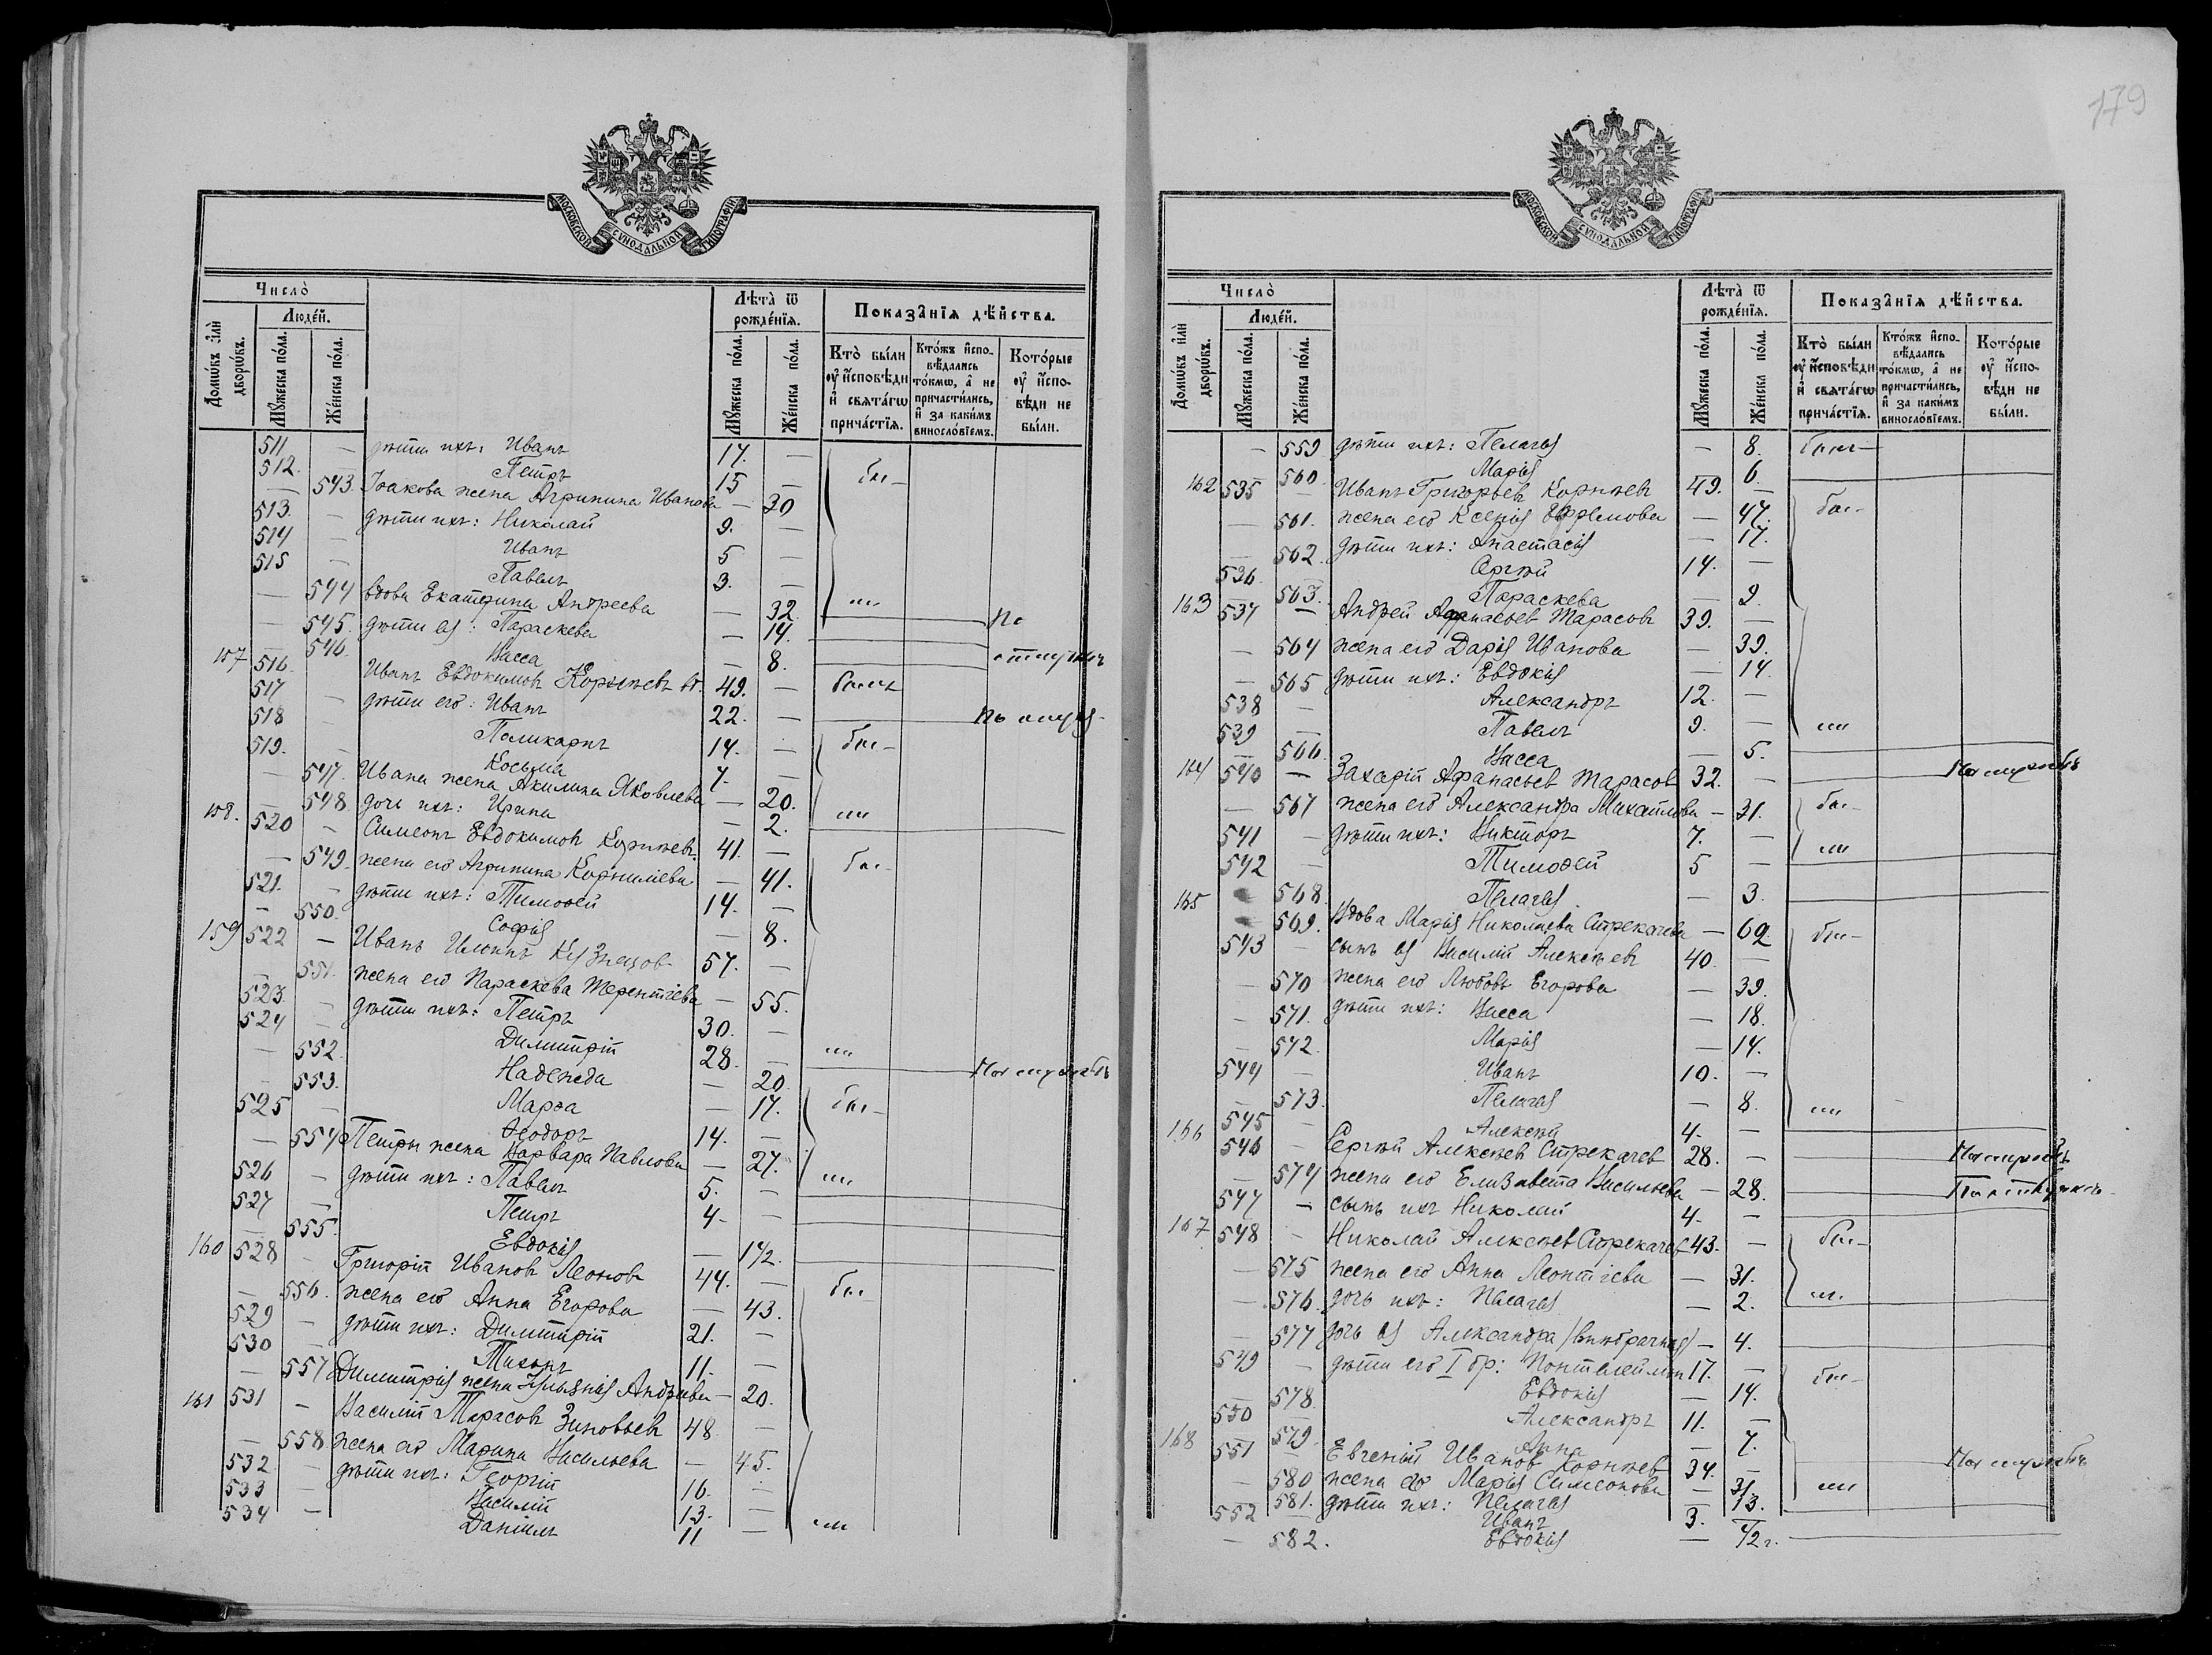 179
МОСКОВСКОЙ СѴНОДАЛЬНОЙ ТИПОГРАФІИ
Число̀
Люде́й.
Домѡ́въ и҆лѝ дворѡ́въ.
Мꙋ́жеска по́ла.
Же́нска по́ла.
Лѣта̀ ѿ рожде́нїѧ.
Мꙋ́жеска по́ла.
Же́нска по́ла.
Показа̑нїѧ дѣ́йства.
Кто̀ бы́ли ᲂу҆ и҆́сповѣди и҆ свѧта́гѡ прича́стїѧ.
Кто́жъ и҆сповѣ́дались то́кмѡ, а҆ не причасти́лись, и҆ за каки́мъ виносло́вїемъ.
Кото́рые ᲂу҆ и҆́сповѣди не бы́ли.
511 — дѣти ихъ: Иванъ 17. —
512. Петръ 15 — был-
— 543. Іоакова жена Агрипина Иванова — 30
513. — дѣти ихъ: Николай 9. —
514 — Иванъ 5 —
515 — Павелъ 3. —
— 544 вдова Екатерина Андреева — 32 ли
— 545. дѣти ея: Параскева — 14. По
— 546. Васса — 8. отлучкѣ
157 516. Иванъ Евдокимовъ Корнѣевъ вд. 49. —
517 — дѣти его: Иванъ 22. —
518 — Поликарпъ 14. — был-
519. — Косьма 7. —
— 547. Ивана жена Акилина Яковлева — 20.
— 548 дочь ихъ: Ирина — 2. ли
158. 520 — Симеонъ Евдокимовъ Корнѣевъ 41. —
— 549 жена его Агрипина Корниліева — 41. был-
521. — дѣти ихъ: Тимоѳей 14. —
— 550. Софія — 8.
159 522 — Иванъ Кузнецов 57. —
— 551. жена его Параскева Терентіева — 55.
523 — дѣти ихъ: Петръ 30. —
524 — Димитрій 28. — ли
— 552. Надежда — 20.
— 553. Марѳа — 17. был-
525 — Ѳеодоръ 14. —
— 554 Петра жена Варвара Павлова — 27.
526 — дѣти ихъ: Павелъ 5. — ли
527 — Петръ 4. —
— 555. Евдокія — 1/2.
160 528 — Григорій Ивановъ Леоновъ 44. —
— 556. жена его Анна Егорова — 43. был-
529 — дѣти ихъ: Димитрій 21. —
530 — Тихонъ 11. —
— 557 Димитрія жена Андреева — 20.
161 531 — Василій Тарасовъ Зиновьевъ 48 —
— 558 жена его Марина Васильева — 45.
532 — дѣти ихъ: Георгій 16. —
533 — Василій 13. —
534 — Даніилъ 11 — ли
Число̀
Люде́й.
Домѡ́въ и҆лѝ дворѡ́въ.
Мꙋ́жеска по́ла.
Же́нска по́ла.
Лѣта̀ ѿ рожде́нїѧ.
Мꙋ́жеска по́ла.
Же́нска по́ла.
Показа̑нїѧ дѣ́йства.
Кто̀ бы́ли ᲂу҆ и҆́сповѣди и҆ свѧта́гѡ прича́стїѧ.
Кто́жъ и҆сповѣ́дались то́кмѡ, а҆ не причасти́лись, и҆ за каки́мъ виносло́вїемъ.
Кото́рые ᲂу҆ и҆́сповѣди не бы́ли.
— 559 дѣти ихъ: Пелагея — 8.
560. Марія 6.
162 535 — Иванъ Григорьевъ Корнѣевъ 49. —
— 561. жена его Ксенія Ефремова — 47. был-
— 562. дѣти ихъ: Анастасія — 17.
536. — Сергѣй 14. —
— 563. Параскева — 9.
163 537 — Андрей Афанасьевъ Тарасовъ 39. —
— 564 жена его Дарія Иванова — 39.
— 565 дѣти ихъ: Евдокія — 14.
538 — Александръ 12. —
539 — Павелъ 9. — ли
— 566 Васса — 5.
164 540 — Захарій Афанасьев Тарасов 32. —
— 567 жена его Александра Михайлова — 31. был-
541 — дѣти ихъ: Викторъ 7. — ли
542 — Тимоѳей 5 —
568 Пелагея — 3.
165 569. вдова Марія Николаева Стрекачева — 62 был-
543 — сынъ ея Василій Алексѣевъ 40. —
— 570 жена его Любовь Егорова — 39.
— 571. дѣти ихъ: Васса — 18.
— 572. Марія — 14.
544 — Иванъ 10. —
— 573. Пелагея — 8. ли
545 — Алексѣй 4. —
166 546 — Сергѣй Алексѣев Стрекачев 28. —
— 574 жена его Елизавета Васильева — 28.
547 — сынъ ихъ Николай 4. —
167 548 — Николай Алексѣев Стрекачев 43. — был-
— 575 жена его Анна Леонтіева — 31.
— 576. дочь ихъ: Пелагея — 2. ли
— 577 дочь ея Александра (внебрачная) — 4.
549 — дѣти его I бр: Понтелеймон 17. — был-
— 578. Евдокія — 14.
550 — Александръ 11. —
— 579. Анна — 7.
168 551 — Евгеній Иванов Корнѣев 34. —
— 580 жена его Марія Симеонова — 31. ли
— 581. дѣти ихъ: Пелагея — 13.
552 — Иванъ 3. —
— 582. Евдокія — 1/2 г.